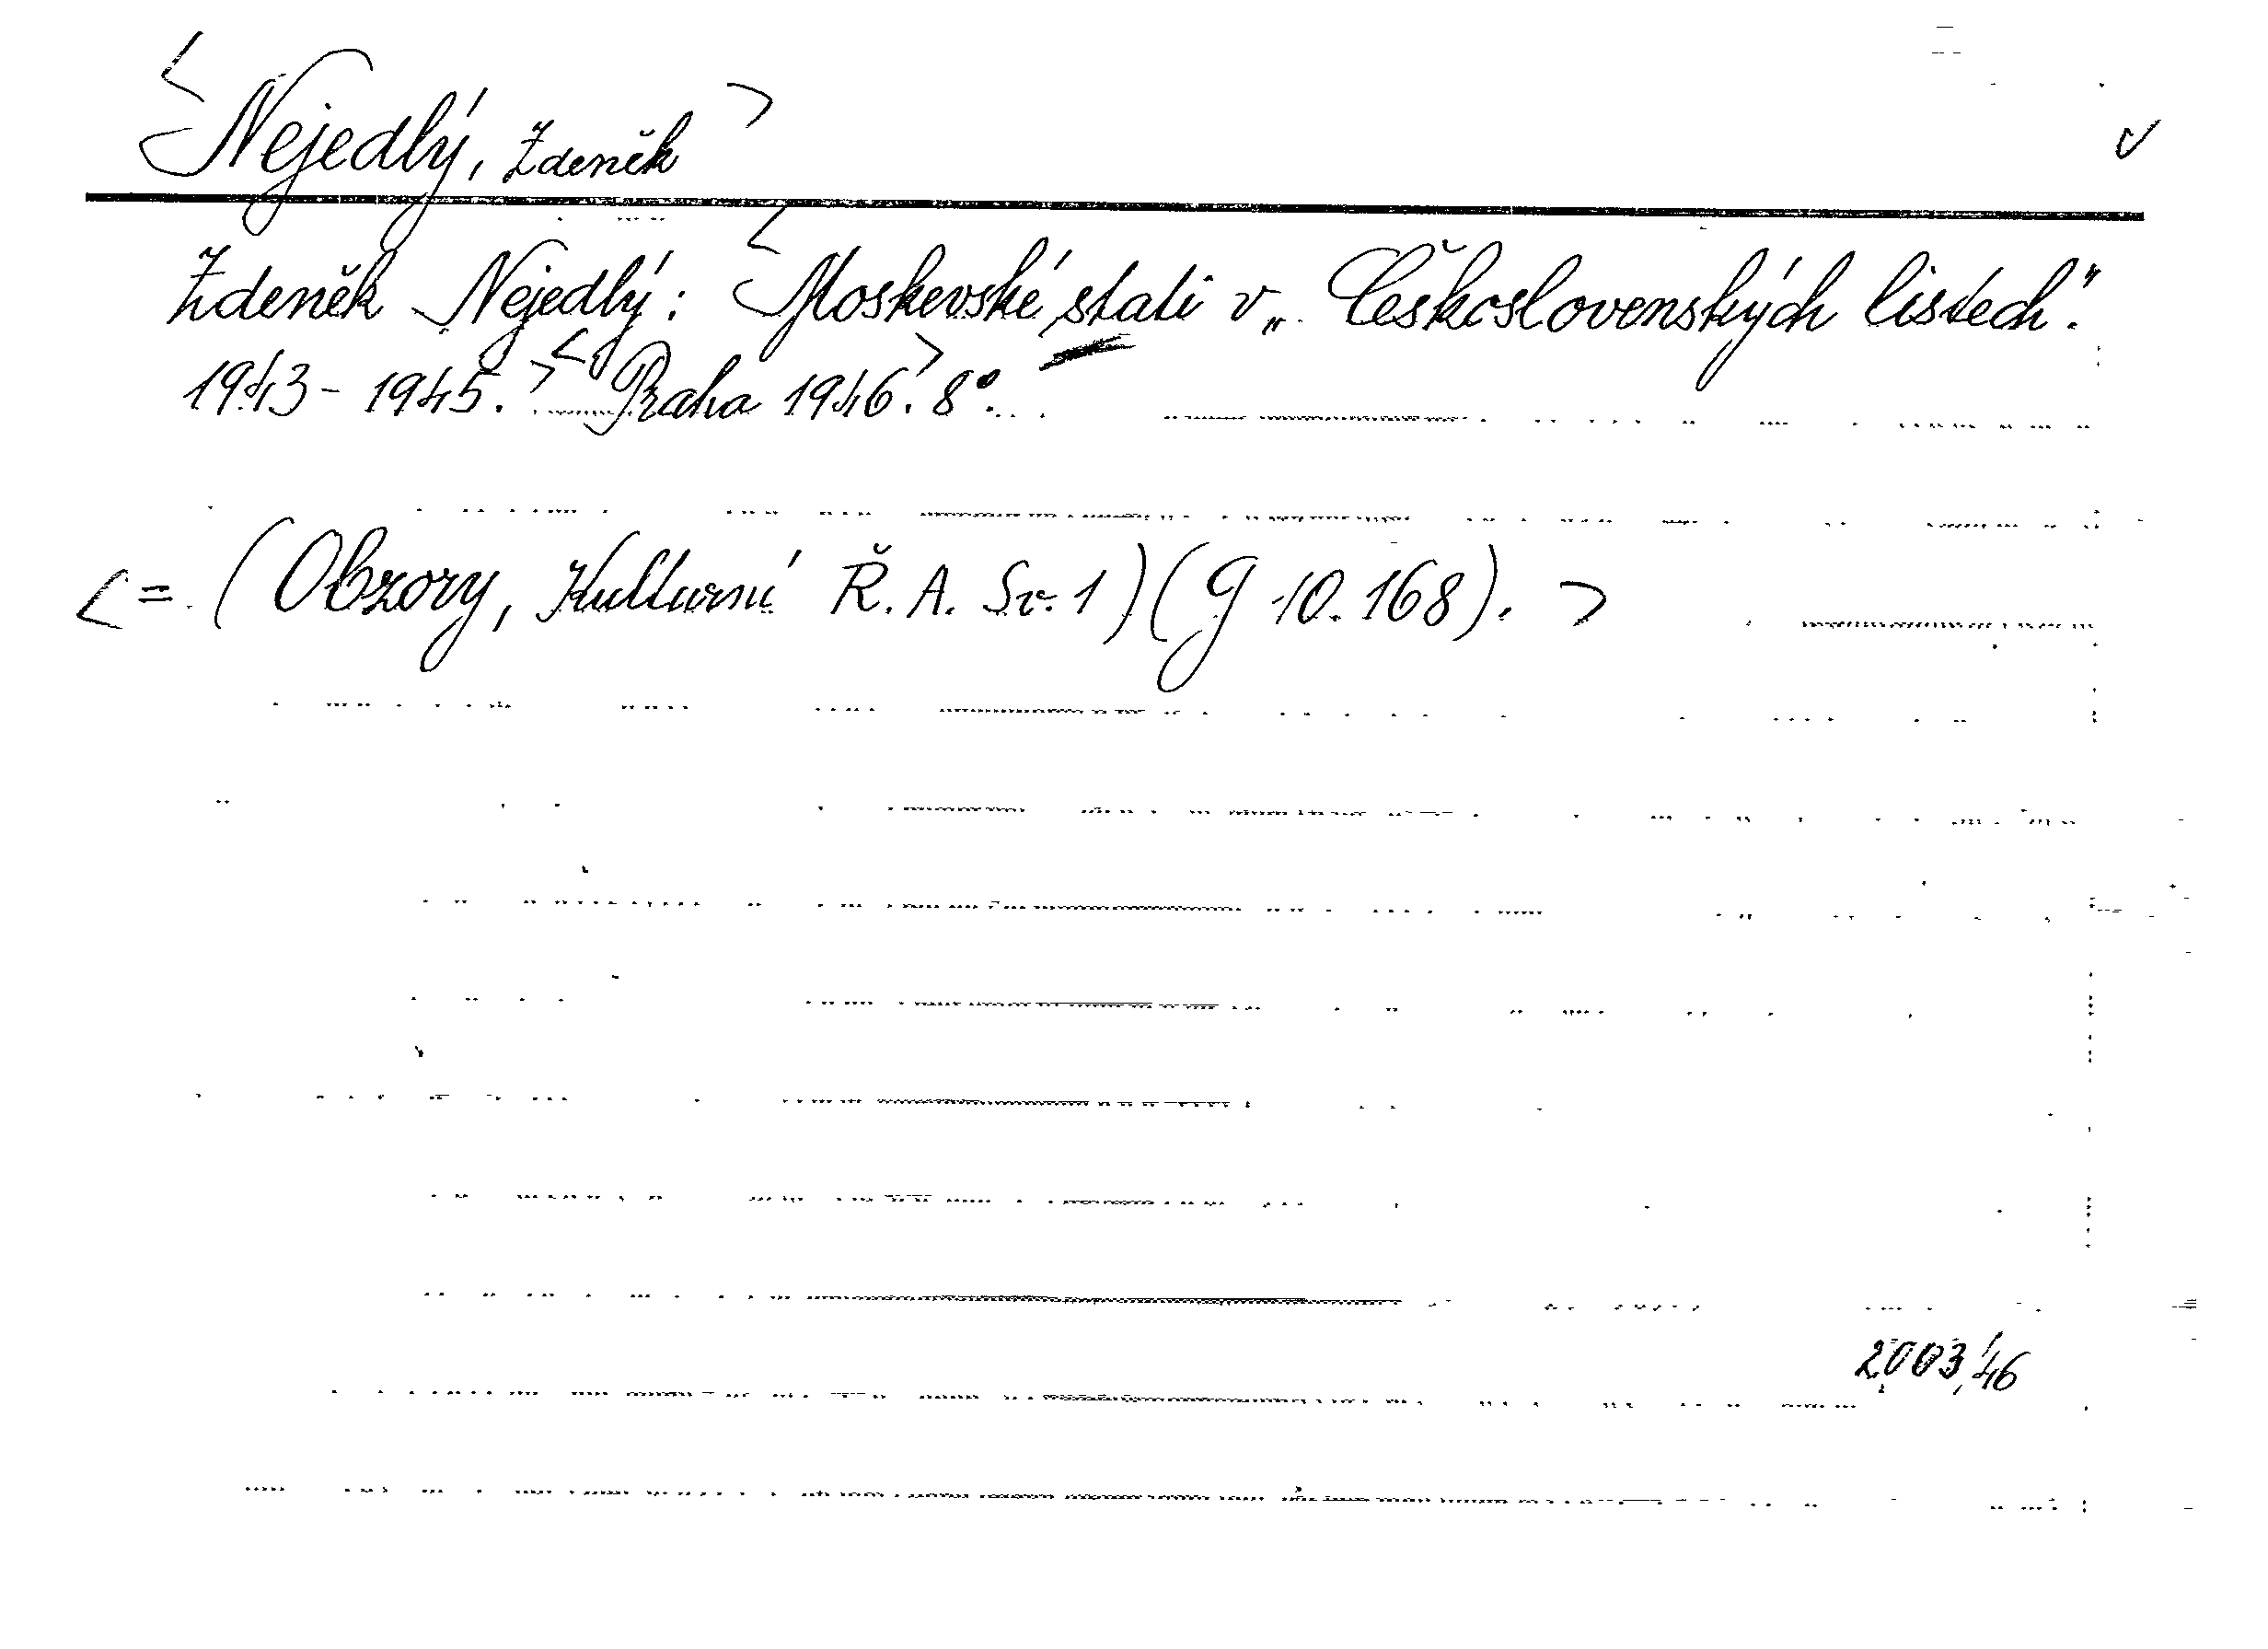 <Nejedlý, Zdeněk>
Zdeněk Nejedlý: <Moskevské stati v „Československých listech".
1943-1945.> <Praha 1946.> 8°.
<= (Obzory, Kulturní Ř. A. Sv. 1) (G 10.168). >
2003/46